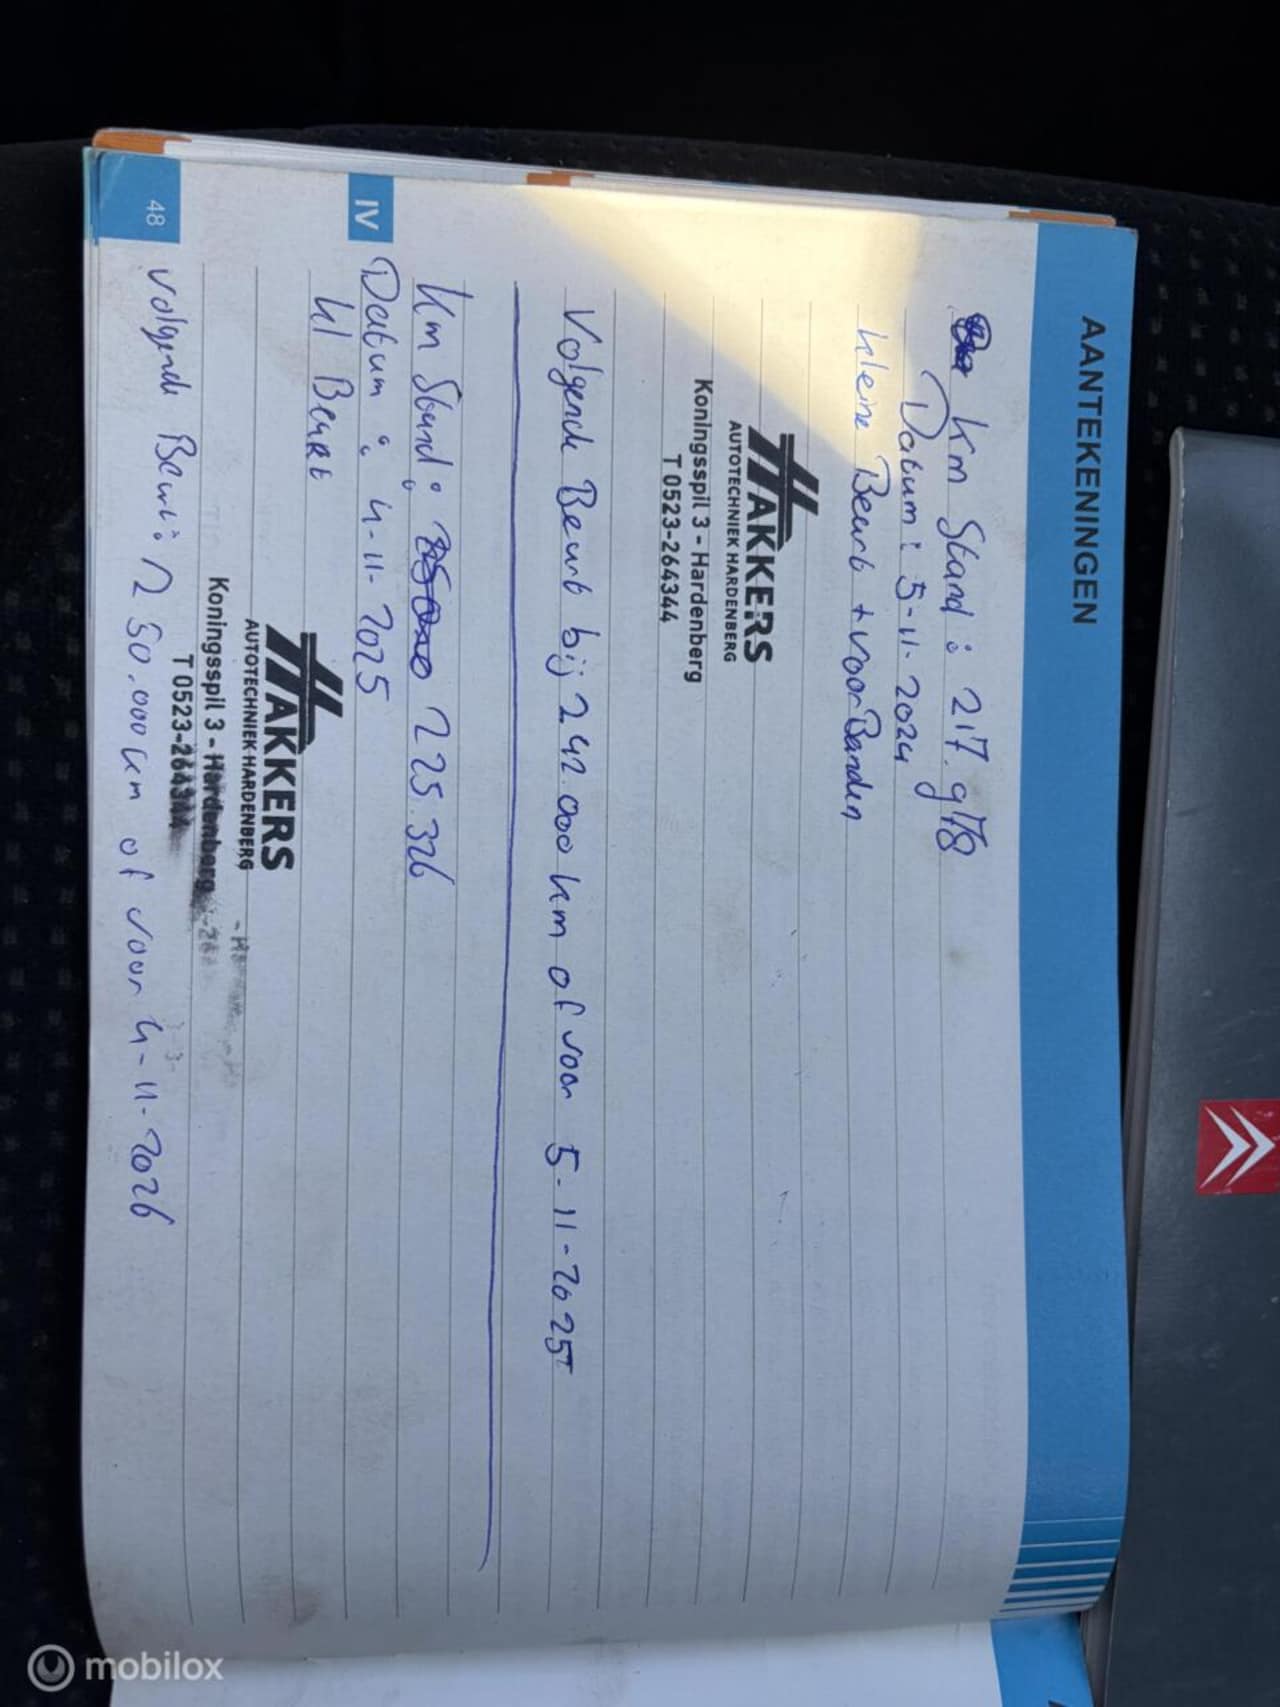 AANTEKENINGEN
Km Stand : 217.978
Datum : 5-11-2024
kleine Beurt + voor Banden
HAKKERS
AUTOTECHNIEK HARDENBERG
Koningsspil 3 - Hardenberg
T 0523-264344
Volgende Beurt bij 242.000 km of voor 5-11-2025
Km Stand : 225.326
IV
Datum : 4-11-2025
kl Beurt
HAKKERS
AUTOTECHNIEK HARDENBERG
Koningsspil 3 - Hardenberg
T 0523-264344
48
Volgende Beurt : 250.000 km of voor 4-11-2026
mobilox